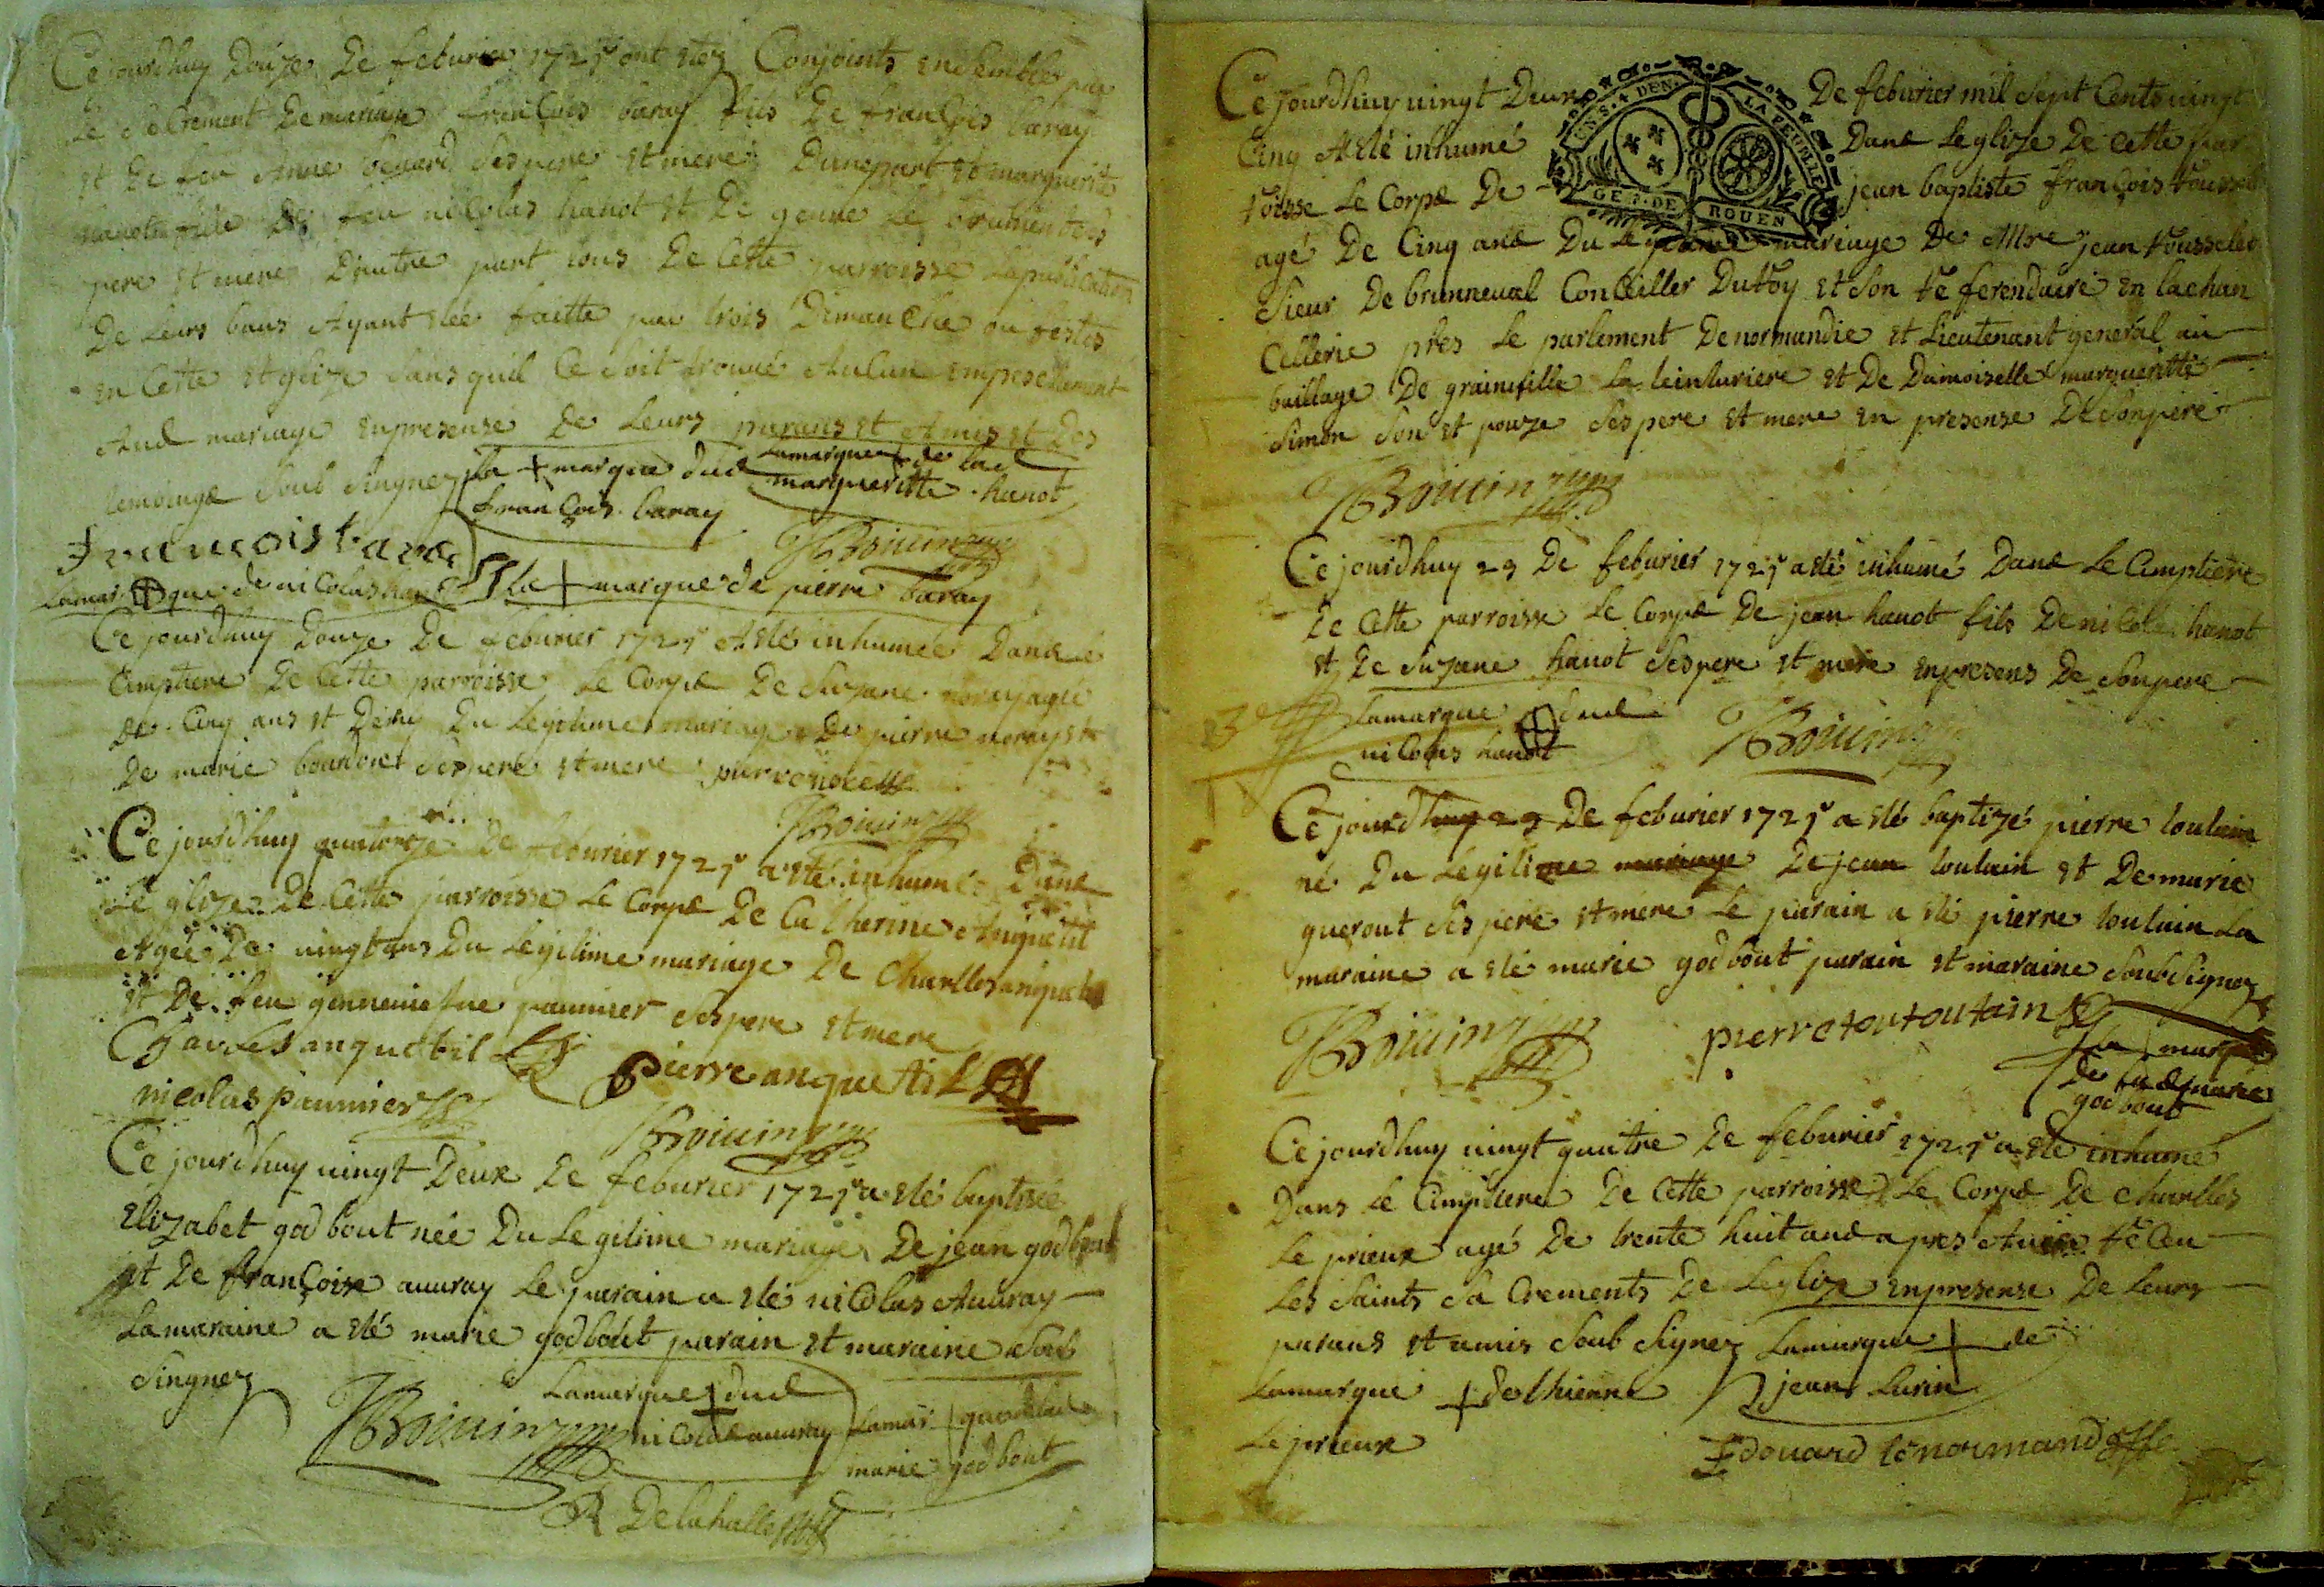 Ce jourdhuy Douze De feburier 1725 ont etez Conjoints ensemble par
Le Sacrement De mariage francois baray fils De francois baray
et De feu Anne benard Ses pere et mere Dune part et marguerite
hanot fille De feu nicolas hanot et De genne Le brument Ses
pere et mere Dautre part tous De Cette parroisse La publication
De Leurs bans Ayant etée faitte par trois Dimanche ou festes
en Cette eglize Sans quil Ce Soit trouué Aucun empeschement
Aud mariage en presense De Leurs parans et Amis et Des
temoings Soub Singnez La + marque dud La marque + de lad
francois baray margueritte hanot
francois bara JBoiuin
La mar + que de nicolas hanot La + marque de pierre baray
Ce jourdhuy Douze De feburier 1725 A eté inhumée Dans Le
Cimptiere De Cette parroisse Le Corps De Suzane noray agée
De Cinq ans et Demy Du Legitime mariage De pierre noray et
De marie bourdonet Ses pere et mere
JBoiuin
Ce jourdhuy quatorze De feburier 1725 a eté inhumée Dans
Le glize De Cette parroisse Le Corps De Catherine Anquetil
Agée De uingt ans Du Legitime mariage De Charlles anquetil
et De feu genneuiefue paumier Ses pere et mere
Charles anquetil Pierre anquetil
nicolas paumier JBoiuin
Ce jourdhuy uingt Deux De feburier 1725 a eté baptizée
Elizabet godbout née Du Legitime mariage De jean godbout
et De francoise auuray Le parain a eté nicolas Auuray
La maraine a eté marie godbout parain et maraine Soub
Singnez La marque + dud
JBoiuin nicolas auuray La mar + que de lad
marie godbout
R Delahalle
Ce jourdhuy uingt Deux De feburier mil Sept Cents uingt
Cinq A eté inhumé Dans Leglize De Cette par
roisse Le Corps De jean baptiste francois rousselet
agé De Cinq ans Du Legitime mariage De Mre jean rousselet
Sieur De brunneual Conseiller Du roy et Son referendaire en la chan
Cellerie pres Le parlement De normandie et Lieutenant general au
baillage De grainuille La teinturiere et De Damoiselle margueritte
Simon Son epouze Ses pere et mere en presense De Son pere
JBoiuin
GEN.DE ROUEN
Ce jourdhuy 23 De feburier 1725 a eté inhumé Dans Le Cimptiere
De Cette parroisse Le Corps De jean hanot fils De nicolas hanot
et De Suzane hanot Ses pere et mere en presens De Son pere
La marque + dud
nicolas hanot JBoiuin
Ce jourdhuy 23 De feburier 1725 a eté baptizé pierre toutain
né Du Legitime mariage De jean toutain et De marie
querout Ses pere et mere Le parain a eté pierre toutain La
maraine a eté marie godbout parain et maraine Soub Signez
JBoiuin pierre toutoutain
La + marque
de lad marie
godbout
Ce jourdhuy uingt quatre De feburier 1725 a eté inhumé
Dans Le Cimptiere De Cette parroisse Le Corps De Charlles
Le prieux agé De trente huit ans apres Auoir reCeu
Les Saints Sacrements De Leglize en presense De Leurs
parans et amis Soub Signez La marque + de
La marque + dethienne jean Lurin
Le prieux Edouard lenormand